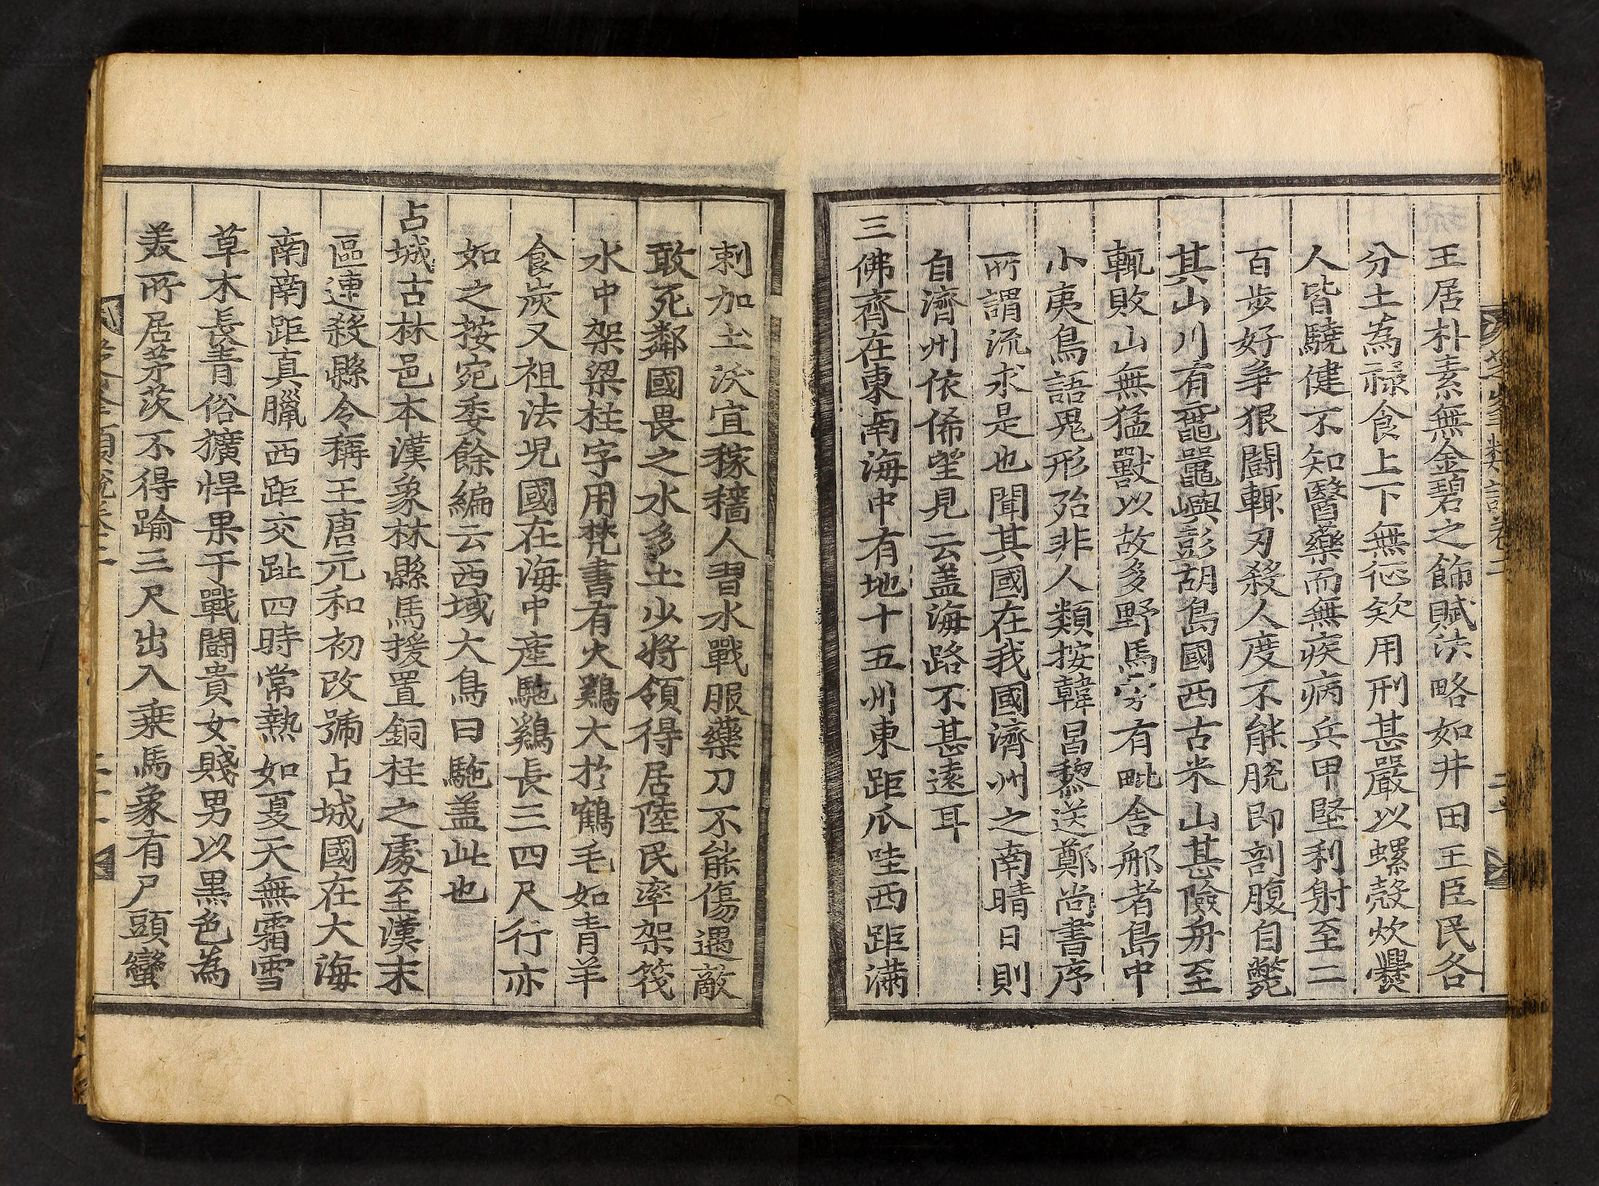 王居朴素無金碧之飾賦法略如井田王臣民各
分土為祿食上下無征欸用刑甚嚴以螺殼炊爨
人皆驍健不知醫藥而無疾病兵甲堅利射至二
百步好爭狠鬪輒刃殺人度不能脫即剖腹自斃
其山川有黿鼉嶼彭胡島國西古米山甚險舟至
輒敗山無猛獸以故多野馬旁有毗舍那者島中
小夷鳥語鬼形殆非人類按韓昌黎送鄭尚書序
所謂流求是也聞其國在我國濟州之南晴日則
自濟州依俙望見云盖海路不甚遠耳
三佛齊在東南海中有地十五州東距爪哇西距滿
剌加土沃宜稼穡人習水戰服藥刀不能傷遇敵
敢死鄰國畏之水多土少將領得居陸民率架筏
水中架梁柱字用梵書有火鷄大於鶴毛如青羊
食炭又祖法兒國在海中産駞鷄長三四尺行亦
如之按宛委餘編云西域大鳥曰駞盖此也
占城古林邑本漢象林縣馬援置銅柱之處至漢末
區連殺縣令稱王唐元和初改號占城國在大海
南南距真臘西距交趾四時常熱如夏天無霜雪
草木長青俗獷悍果于戰鬪貴女賤男以黑色為
美所居茅茨不得踰三尺出入乘馬象有尸頭蠻